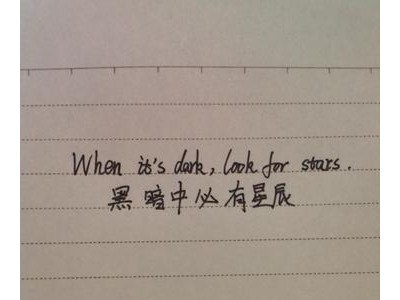 When it's dark, look for stars.
黑暗中必有星辰